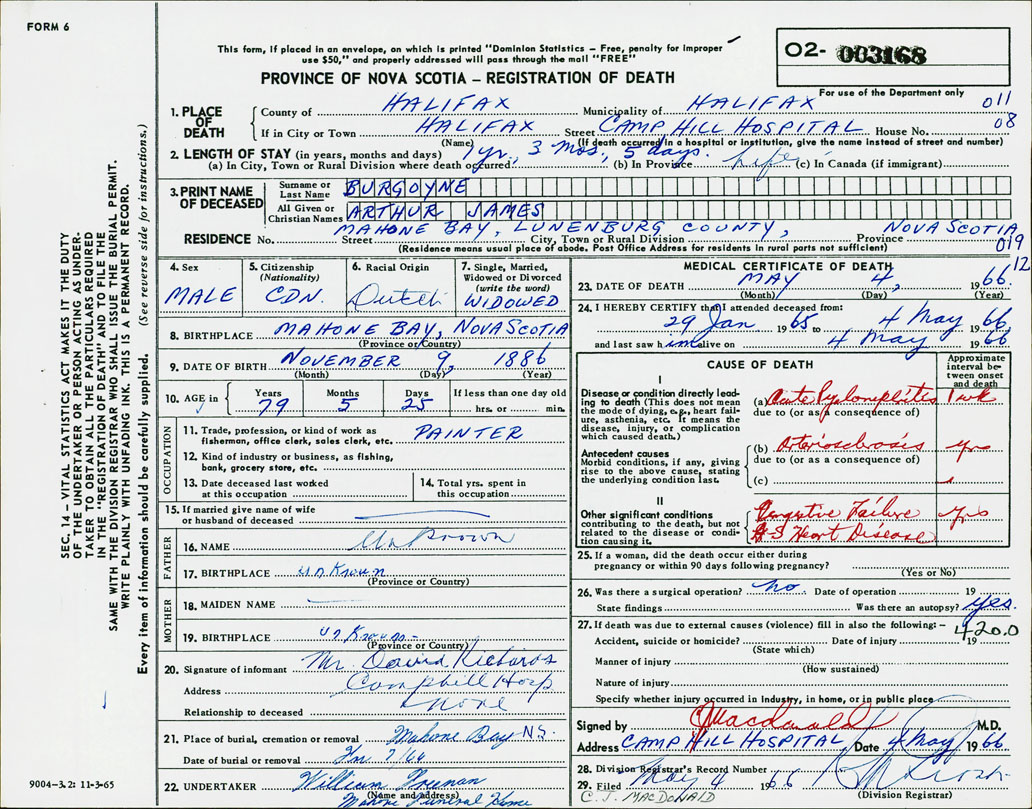 FORM 6
This form, if placed in an envelope, on which is printed "Dominion Statistics – Free, penalty for improper
use $50," and properly addressed will pass through the mail "FREE"
PROVINCE OF NOVA SCOTIA – REGISTRATION OF DEATH
O2- 003168
For use of the Department only
011
08
1. PLACE OF DEATH
County of HALIFAX Municipality of HALIFAX
If in City or Town HALIFAX Street CAMP HILL HOSPITAL House No.
(Name) (If death occurred in a hospital or institution, give the name instead of street and number)
2. LENGTH OF STAY (in years, months and days) 1 yr., 3 mos, 5 days.
(a) In City, Town or Rural Division where death occurred (b) In Province life (c) In Canada (if immigrant)
3. PRINT NAME OF DECEASED
Surname or Last Name BURGOYNE
All Given or Christian Names ARTHUR JAMES
MAHONE BAY, LUNENBURG COUNTY, NOVA SCOTIA
RESIDENCE No. Street City, Town or Rural Division Province
019
(Residence means usual place of abode. Post Office Address for residents in rural parts not sufficient)
12
4. Sex MALE
5. Citizenship (Nationality) CDN.
6. Racial Origin Dutch
7. Single, Married, Widowed or Divorced (write the word) WIDOWED
8. BIRTHPLACE MAHONE BAY, NOVA SCOTIA
(Province or Country)
9. DATE OF BIRTH NOVEMBER 9, 1886
(Month) (Day) (Year)
10. AGE in Years 79 Months 5 Days 25 If less than one day old hrs. or min.
OCCUPATION
11. Trade, profession, or kind of work as fisherman, office clerk, sales clerk, etc. PAINTER
12. Kind of industry or business, as fishing, bank, grocery store, etc.
13. Date deceased last worked at this occupation
14. Total yrs. spent in this occupation
15. If married give name of wife or husband of deceased
FATHER
16. NAME Unknown
17. BIRTHPLACE unknown
(Province or Country)
MOTHER
18. MAIDEN NAME
19. BIRTHPLACE unknown
(Province or Country)
20. Signature of informant Mr. David Richards
Address Camphill Hosp
Relationship to deceased None
21. Place of burial, cremation or removal Mahone Bay NS.
Date of burial or removal 7/66
22. UNDERTAKER William
(Name and address) Mahone Funeral Home
MEDICAL CERTIFICATE OF DEATH
23. DATE OF DEATH MAY 4, 1966
(Month) (Day) (Year)
24. I HEREBY CERTIFY that I attended deceased from:
29 Jan 1965 to 4 May 1966
and last saw him alive on 4 May 1966
CAUSE OF DEATH
Approximate interval between onset and death
I
Disease or condition directly leading to death (This does not mean the mode of dying, e.g., heart failure, asthenia, etc. it means the disease, injury, or complication which caused death.)
(a) Acute Pyelonephritis 1 wk
due to (or as a consequence of)
Antecedent causes
Morbid conditions, if any, giving rise to the above cause, stating the underlying condition last.
(b) Arteriosclerosis yrs
due to (or as a consequence of)
(c)
II
Other significant conditions
contributing to the death, but not related to the disease or condition causing it.
Congestive Failure yrs
A S Heart Disease
25. If a woman, did the death occur either during pregnancy or within 90 days following pregnancy?
(Yes or No)
26. Was there a surgical operation? no. Date of operation 19
State findings Was there an autopsy? yes.
27. If death was due to external causes (violence) fill in also the following:–
420.0
Accident, suicide or homicide? Date of injury 19
(State which)
Manner of injury
(How sustained)
Nature of injury
Specify whether injury occurred in industry, in home, or in public place
Signed by CJ Macdonald M.D.
Address CAMP HILL HOSPITAL Date 4 May 1966
28. Division Registrar's Record Number
29. Filed May 4 1966
(Division Registrar)
C. J. MACDONALD
SEC. 14 – VITAL STATISTICS ACT MAKES IT THE DUTY
OF THE UNDERTAKER OR PERSON ACTING AS UNDER-
TAKER TO OBTAIN ALL THE PARTICULARS REQUIRED
IN THE "REGISTRATION OF DEATH" AND TO FILE THE
SAME WITH THE DIVISION REGISTRAR WHO SHALL ISSUE THE BURIAL PERMIT.
WRITE PLAINLY WITH UNFADING INK. THIS IS A PERMANENT RECORD.
Every item of information should be carefully supplied. (See reverse side for instructions.)
9004–3.2: 11-3-65